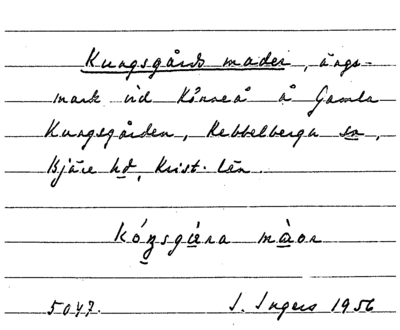 Kungsgårds mader, ängs-
mark vid Könneå å Gamla
Kungsgården, Rebbelberga sn,
Bjäre hd, Krist. län.
kóŋsgæra màor
5047. I. Ingers 1956